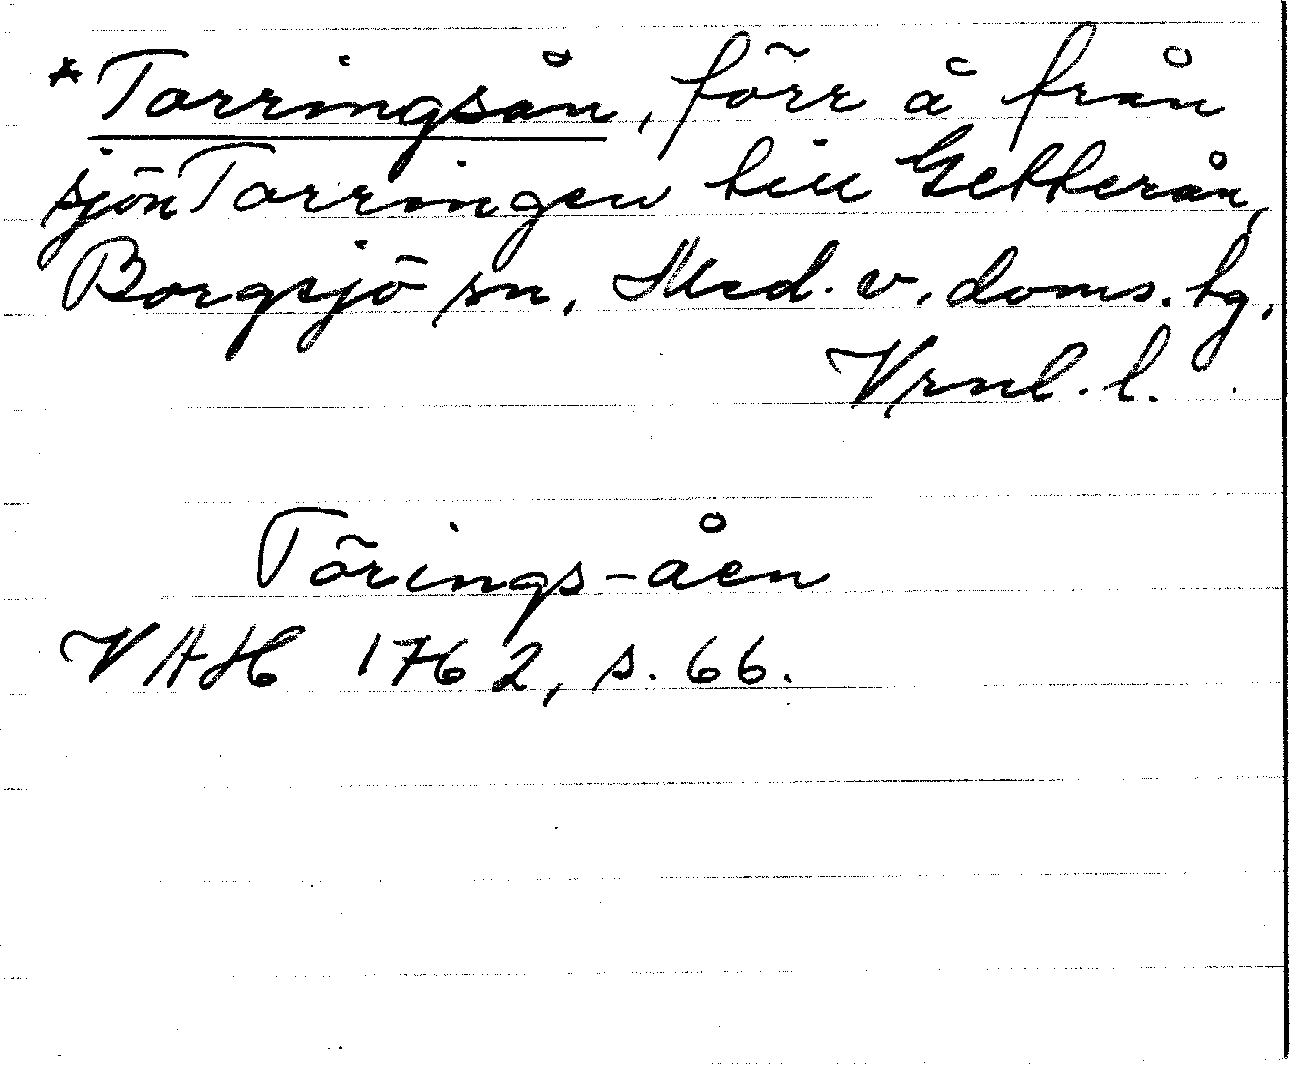 *Torringsån, förr å från
sjön Torringen till Getterån,
Borgsjö sn, Med. v. doms. hg,
Vrnl. l.
Törings-åen
VAH 1762, s. 66.